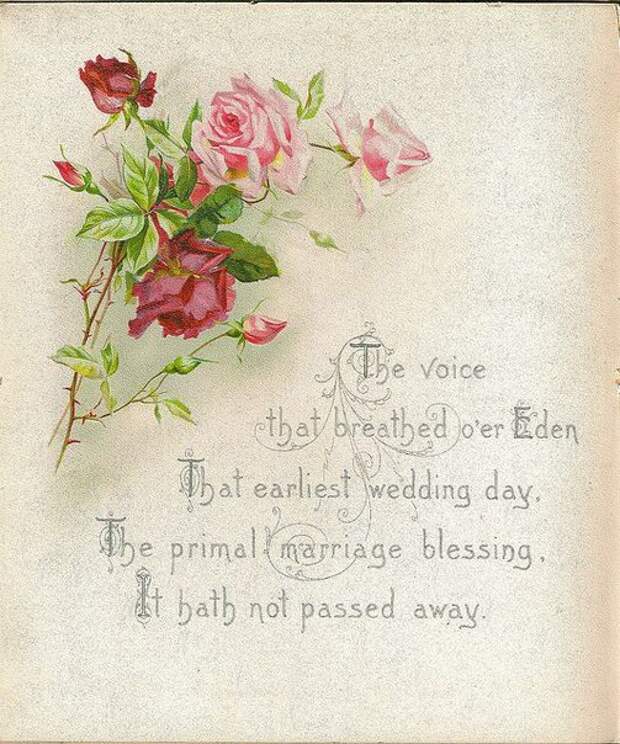 The voice
that breathed o'er Eden
That earliest wedding day,
The primal marriage blessing,
It hath not passed away.